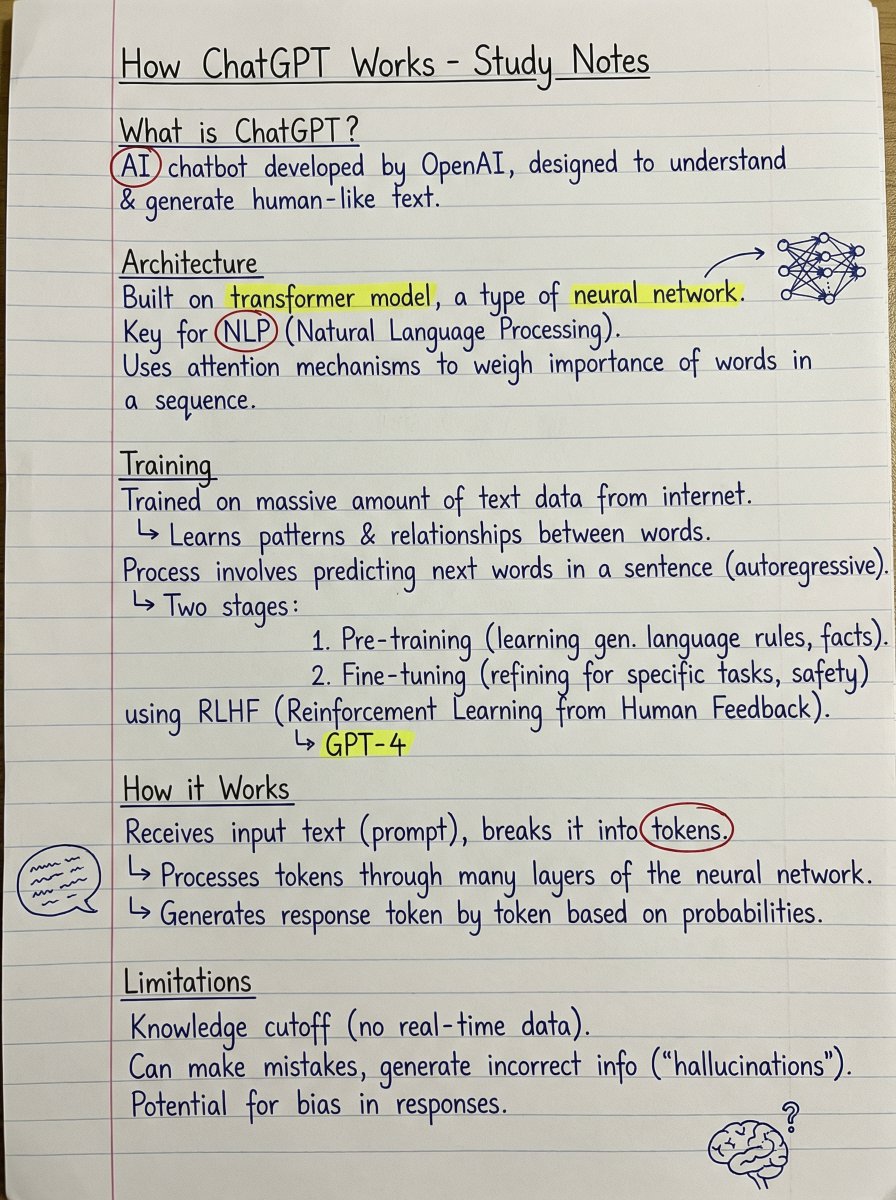 How ChatGPT Works - Study Notes
What is ChatGPT?
AI chatbot developed by OpenAI, designed to understand
& generate human-like text.
Architecture
Built on transformer model, a type of neural network.
Key for NLP (Natural Language Processing).
Uses attention mechanisms to weigh importance of words in
a sequence.
Training
Trained on massive amount of text data from internet.
↳ Learns patterns & relationships between words.
Process involves predicting next words in a sentence (autoregressive).
↳ Two stages:
1. Pre-training (learning gen. language rules, facts).
2. Fine-tuning (refining for specific tasks, safety)
using RLHF (Reinforcement Learning from Human Feedback).
↳ GPT-4
How it Works
Receives input text (prompt), breaks it into tokens.
↳ Processes tokens through many layers of the neural network.
↳ Generates response token by token based on probabilities.
Limitations
Knowledge cutoff (no real-time data).
Can make mistakes, generate incorrect info ("hallucinations").
Potential for bias in responses.
?